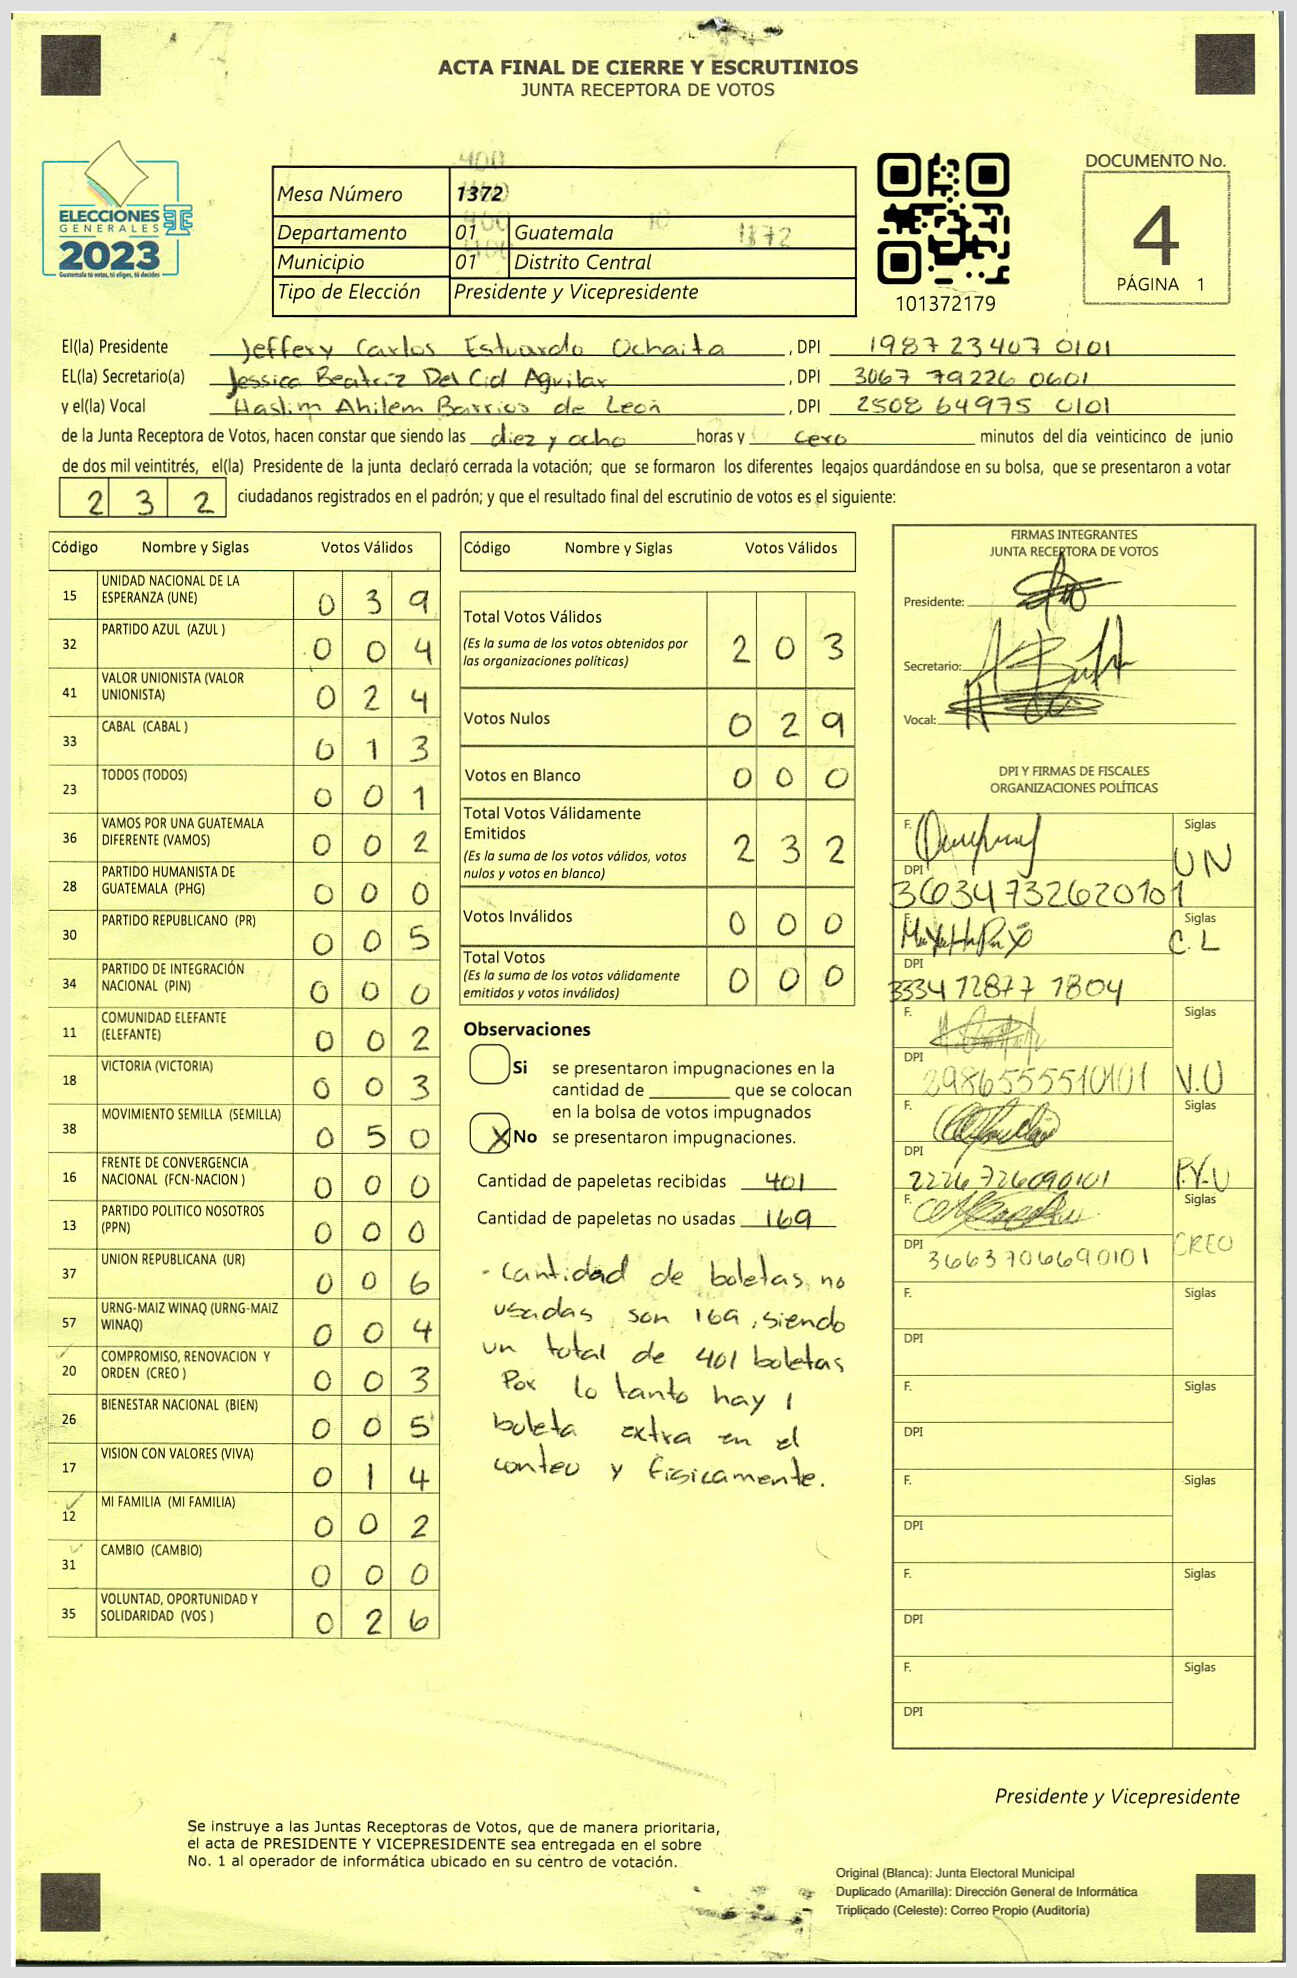 ACTA FINAL DE CIERRE Y ESCRUTINIOS
JUNTA RECEPTORA DE VOTOS
ELECCIONES
GENERALES
2023
Guatemala tú votas, tú eliges, tú decides
400
Mesa Número 1372
Departamento 01 Guatemala
Municipio 01 Distrito Central
Tipo de Elección Presidente y Vicepresidente
101372179
DOCUMENTO No.
4
PÁGINA 1
El(la) Presidente Jeffery Carlos Estuardo Ochaita , DPI 1987 23407 0101
EL(la) Secretario(a) Jessica Beatriz Del Cid Aguilar , DPI 3067 79226 0601
y el(la) Vocal Haslim Ahilem Barrios de León , DPI 2508 64975 0101
de la Junta Receptora de Votos, hacen constar que siendo las diez y ocho horas y cero minutos del día veinticinco de junio
de dos mil veintitrés, el(la) Presidente de la junta declaró cerrada la votación; que se formaron los diferentes legajos guardándose en su bolsa, que se presentaron a votar
2 3 2 ciudadanos registrados en el padrón; y que el resultado final del escrutinio de votos es el siguiente:
Código Nombre y Siglas Votos Válidos
15 UNIDAD NACIONAL DE LA ESPERANZA (UNE) 0 3 9
32 PARTIDO AZUL (AZUL ) 0 0 4
41 VALOR UNIONISTA (VALOR UNIONISTA) 0 2 4
33 CABAL (CABAL ) 0 1 3
23 TODOS (TODOS) 0 0 1
36 VAMOS POR UNA GUATEMALA DIFERENTE (VAMOS) 0 0 2
28 PARTIDO HUMANISTA DE GUATEMALA (PHG) 0 0 0
30 PARTIDO REPUBLICANO (PR) 0 0 5
34 PARTIDO DE INTEGRACIÓN NACIONAL (PIN) 0 0 0
11 COMUNIDAD ELEFANTE (ELEFANTE) 0 0 2
18 VICTORIA (VICTORIA) 0 0 3
38 MOVIMIENTO SEMILLA (SEMILLA) 0 5 0
16 FRENTE DE CONVERGENCIA NACIONAL (FCN-NACION ) 0 0 0
13 PARTIDO POLITICO NOSOTROS (PPN) 0 0 0
37 UNION REPUBLICANA (UR) 0 0 6
57 URNG-MAIZ WINAQ (URNG-MAIZ WINAQ) 0 0 4
20 COMPROMISO, RENOVACION Y ORDEN (CREO ) 0 0 3
26 BIENESTAR NACIONAL (BIEN) 0 0 5
17 VISION CON VALORES (VIVA) 0 1 4
12 MI FAMILIA (MI FAMILIA) 0 0 2
31 CAMBIO (CAMBIO) 0 0 0
35 VOLUNTAD, OPORTUNIDAD Y SOLIDARIDAD (VOS ) 0 2 6
Código Nombre y Siglas Votos Válidos
Total Votos Válidos 2 0 3
(Es la suma de los votos obtenidos por
las organizaciones políticas)
Votos Nulos 0 2 9
Votos en Blanco 0 0 0
Total Votos Válidamente
Emitidos 2 3 2
(Es la suma de los votos válidos, votos
nulos y votos en blanco)
Votos Inválidos 0 0 0
Total Votos 0 0 0
(Es la suma de los votos válidamente
emitidos y votos inválidos)
Observaciones
Si se presentaron impugnaciones en la
cantidad de ________ que se colocan
en la bolsa de votos impugnados
X No se presentaron impugnaciones.
Cantidad de papeletas recibidas 401
Cantidad de papeletas no usadas 169
- Cantidad de boletas no
usadas son 169, siendo
un total de 401 boletas
Por lo tanto hay 1
boleta extra en el
conteo y fisicamente.
FIRMAS INTEGRANTES
JUNTA RECEPTORA DE VOTOS
Presidente:
Secretario:
Vocal:
DPI Y FIRMAS DE FISCALES
ORGANIZACIONES POLÍTICAS
F. Siglas
DPI UN
3634732620101
F. Siglas
C.L
DPI
3334 12877 1804
F. Siglas
DPI
2986555510101 V.U
F. Siglas
DPI
2226726090101 P.Y.U
F. Siglas
DPI 3663706690101 CREO
F. Siglas
DPI
F. Siglas
DPI
F. Siglas
DPI
F. Siglas
DPI
F. Siglas
DPI
Presidente y Vicepresidente
Se instruye a las Juntas Receptoras de Votos, que de manera prioritaria,
el acta de PRESIDENTE Y VICEPRESIDENTE sea entregada en el sobre
No. 1 al operador de informática ubicado en su centro de votación.
Original (Blanca): Junta Electoral Municipal
Duplicado (Amarilla): Dirección General de Informática
Triplicado (Celeste): Correo Propio (Auditoría)